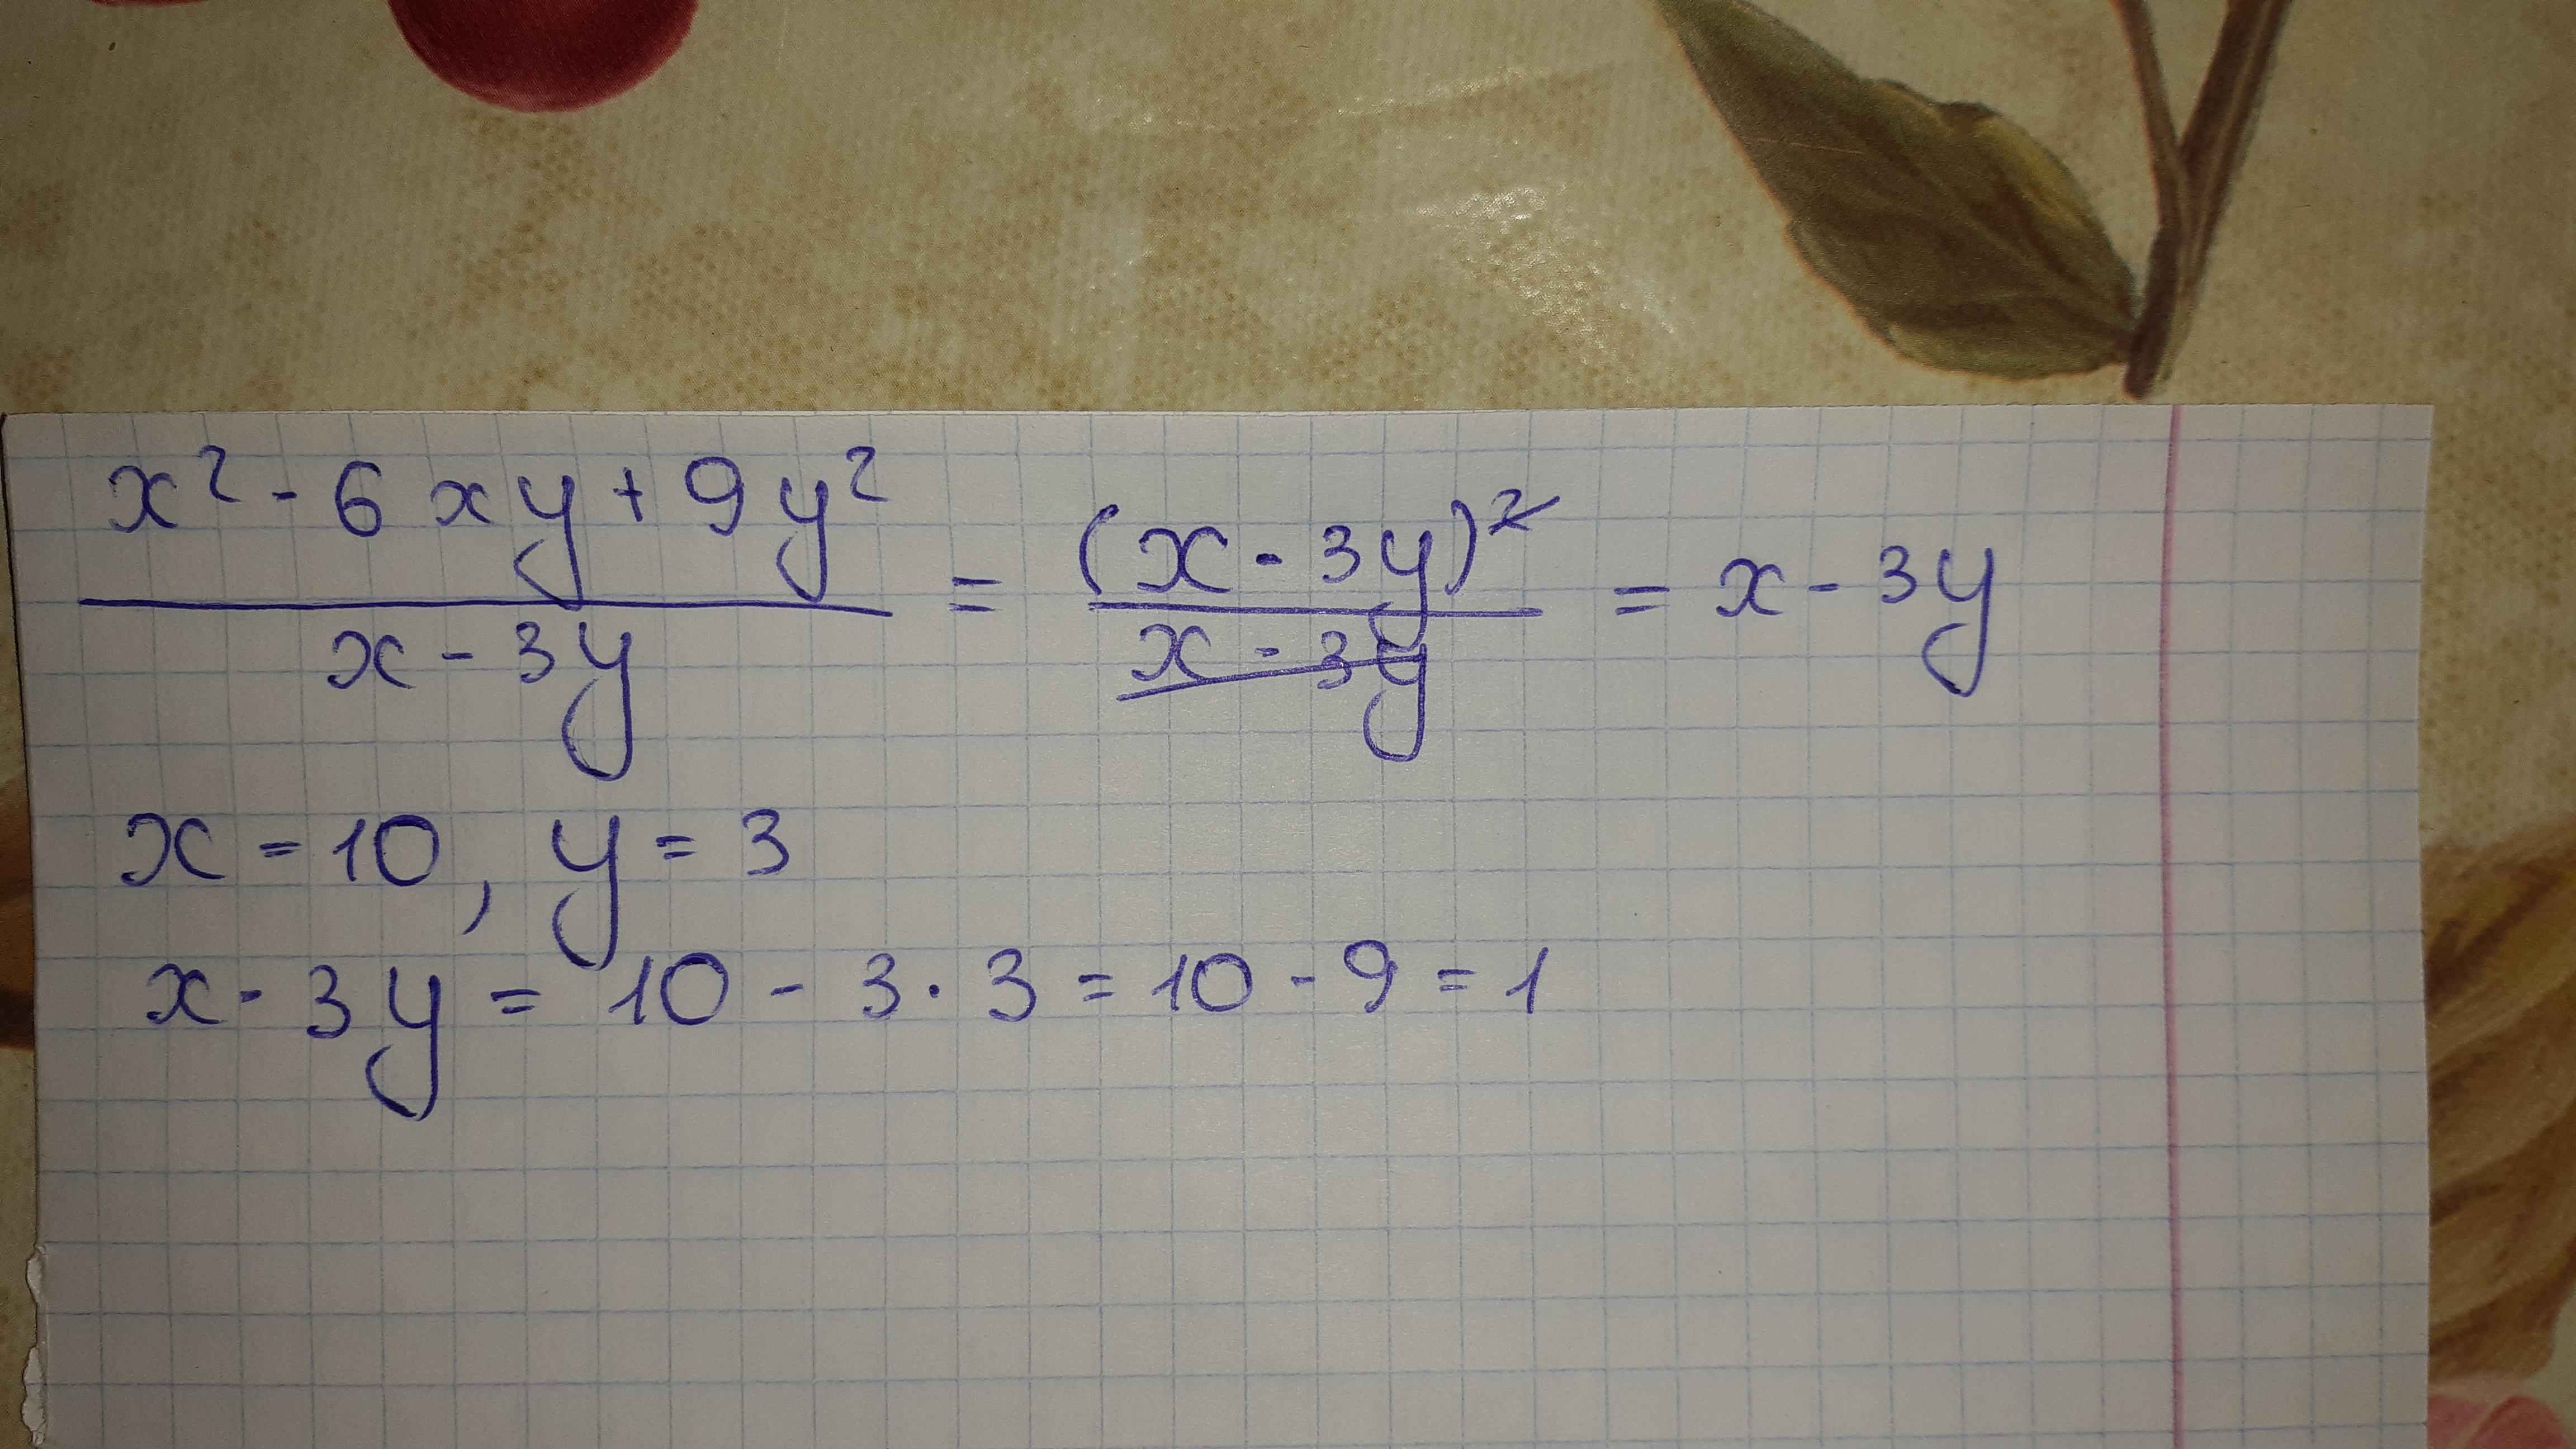 x² - 6xy + 9y² / x - 3y = (x - 3y)² / x - 3y = x - 3y
x = 10, y = 3
x - 3y = 10 - 3 · 3 = 10 - 9 = 1